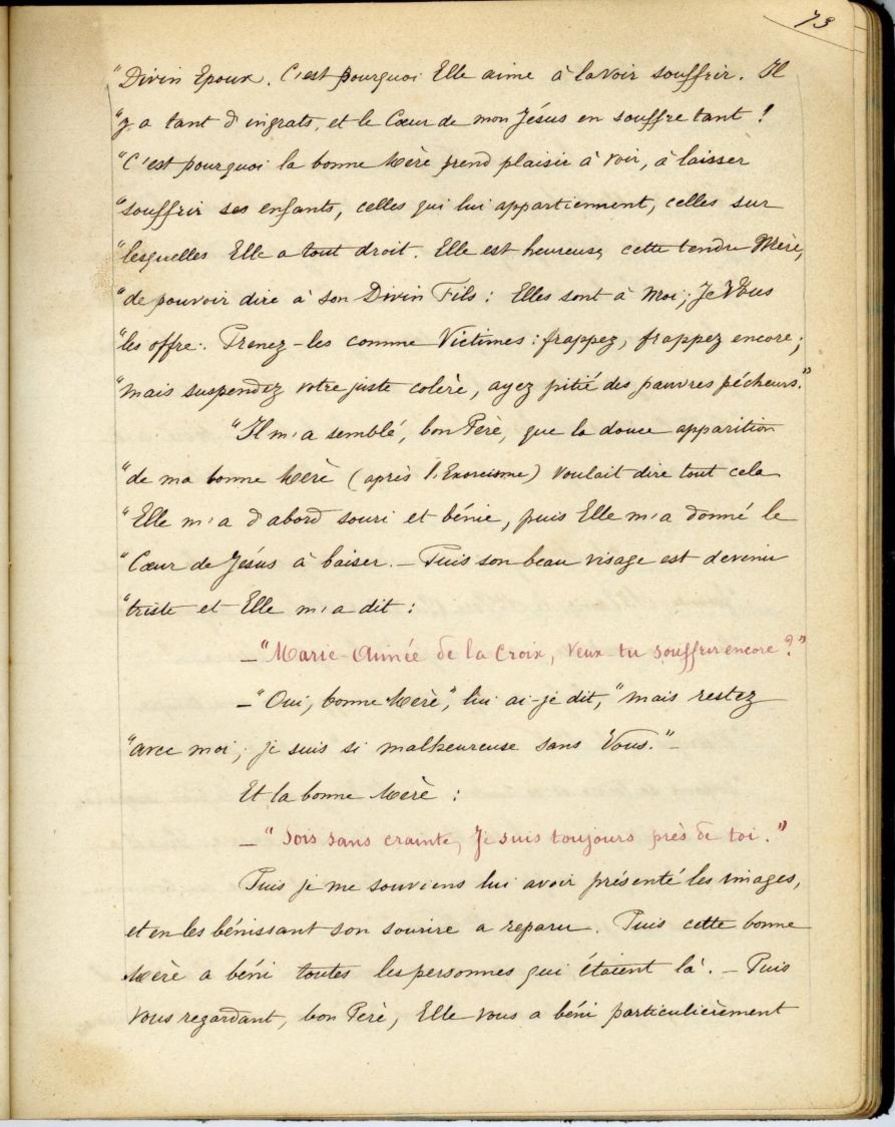 73
"Divin Epoux. C'est pourquoi Elle aime à la voir souffrir. Il
"y a tant d'ingrats, et le Cœur de mon Jésus en souffre tant !
"C'est pourquoi la bonne Mère prend plaisir à voir, à laisser
"souffrir ses enfants, celles qui lui appartiennent, celles sur
"lesquelles Elle a tout droit. Elle est heureuse, cette tendre Mère,
"de pouvoir dire à son Divin Fils : Elles sont à Moi; Je Vous
"les offre. Prenez-les comme Victimes : frappez, frappez encore;
"mais suspendez votre juste colère, ayez pitié des pauvres pécheurs."
"Il m'a semblé, bon Père, que la douce apparition
"de ma bonne Mère (après l'Exorcisme) voulait dire tout cela
"Elle m'a d'abord souri et bénie, puis Elle m'a donné le
"Cœur de Jésus à baiser. — Puis son beau visage est devenu
"triste et Elle m'a dit :
— "Marie-Aimée de la Croix, veux tu souffrir encore ?"
— "Oui, bonne Mère", lui ai-je dit, "mais restez
"avec moi; je suis si malheureuse sans Vous." —
Et la bonne Mère :
— "Sois sans crainte, Je suis toujours près de toi."
Puis je me souviens lui avoir présenté les images,
et en les bénissant son sourire a reparu. Puis cette bonne
Mère a béni toutes les personnes qui étaient là. — Puis
vous regardant, bon Père, Elle vous a béni particulièrement